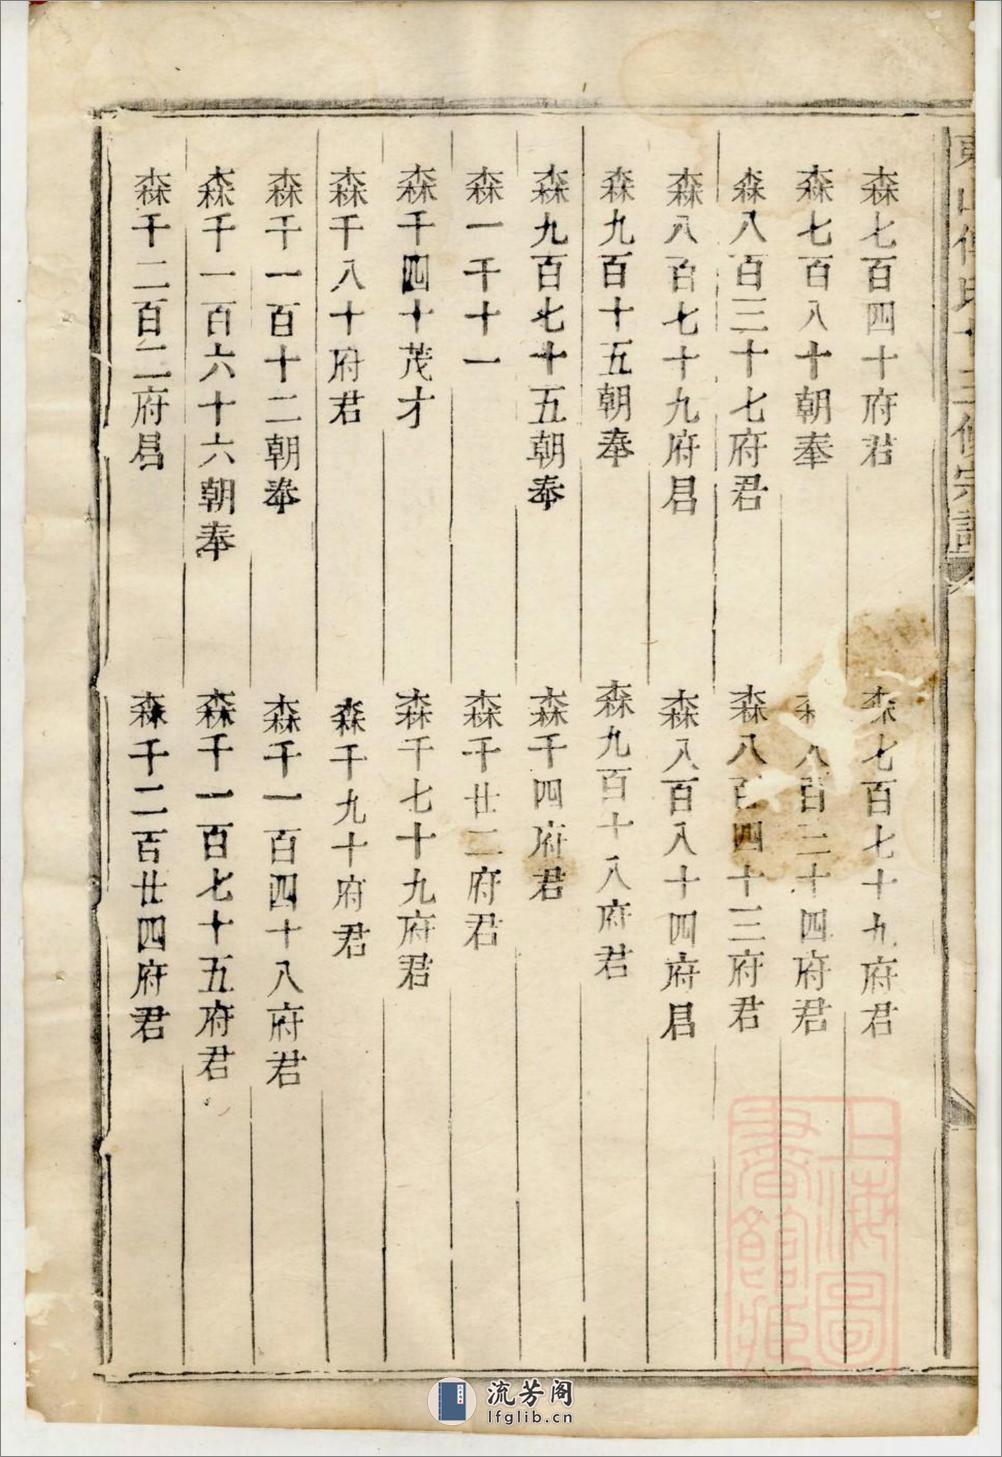 森七百四十府君
森七百七十九府君
森七百八十朝奉
八百二十四府君
森八百三十七府君
森八百四十三府君
森八百七十九府君
森八百八十四府君
森九百十五朝奉
森九百十八府君
森九百七十五朝奉
森千四府君
森一千十一
森千廿二府君
森千四十茂才
森千七十九府君
森千八十府君
森千九十府君
森千一百十二朝奉
森千一百四十八府君
森千一百六十六朝奉
森千一百七十五府君
森千二百二府君
森千二百廿四府君
上海圖書館藏
流芳阁
lfglib.cn